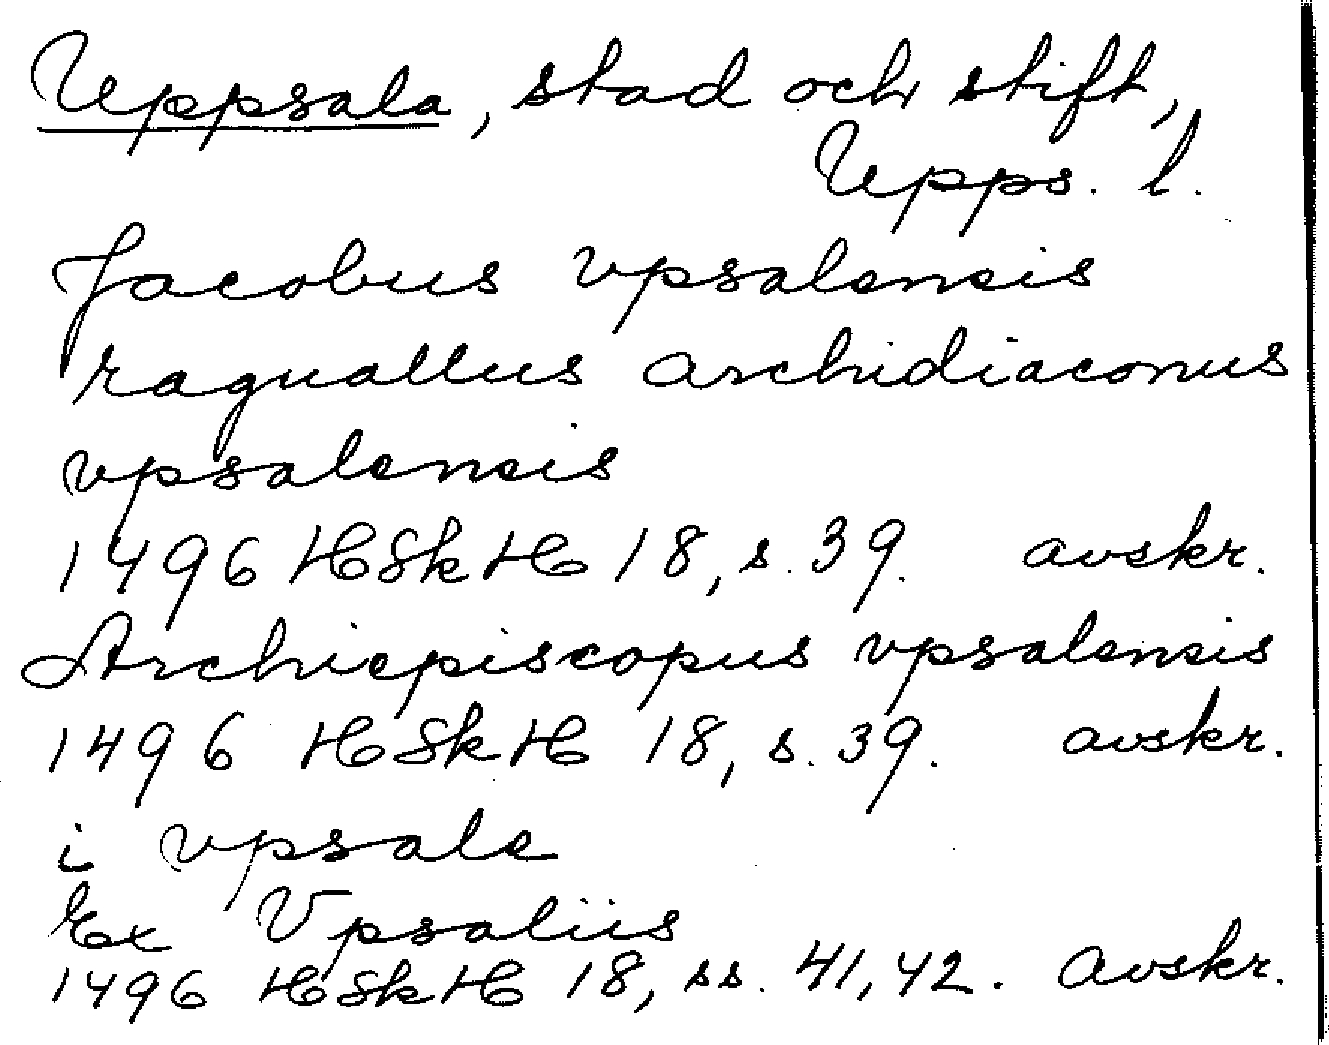 Uppsala, stad och stift,
Upps. l.
Jacobus vpsalensis
raguallus archidiaconus
vpsalensis
1496 HSkH 18, s. 39. avskr.
Archiepiscopus vpsalensis
1496 HSkH 18, s. 39. avskr.
i vpsale
Ex Vpsaliis
1496 HSkH 18, ss. 41, 42. avskr.